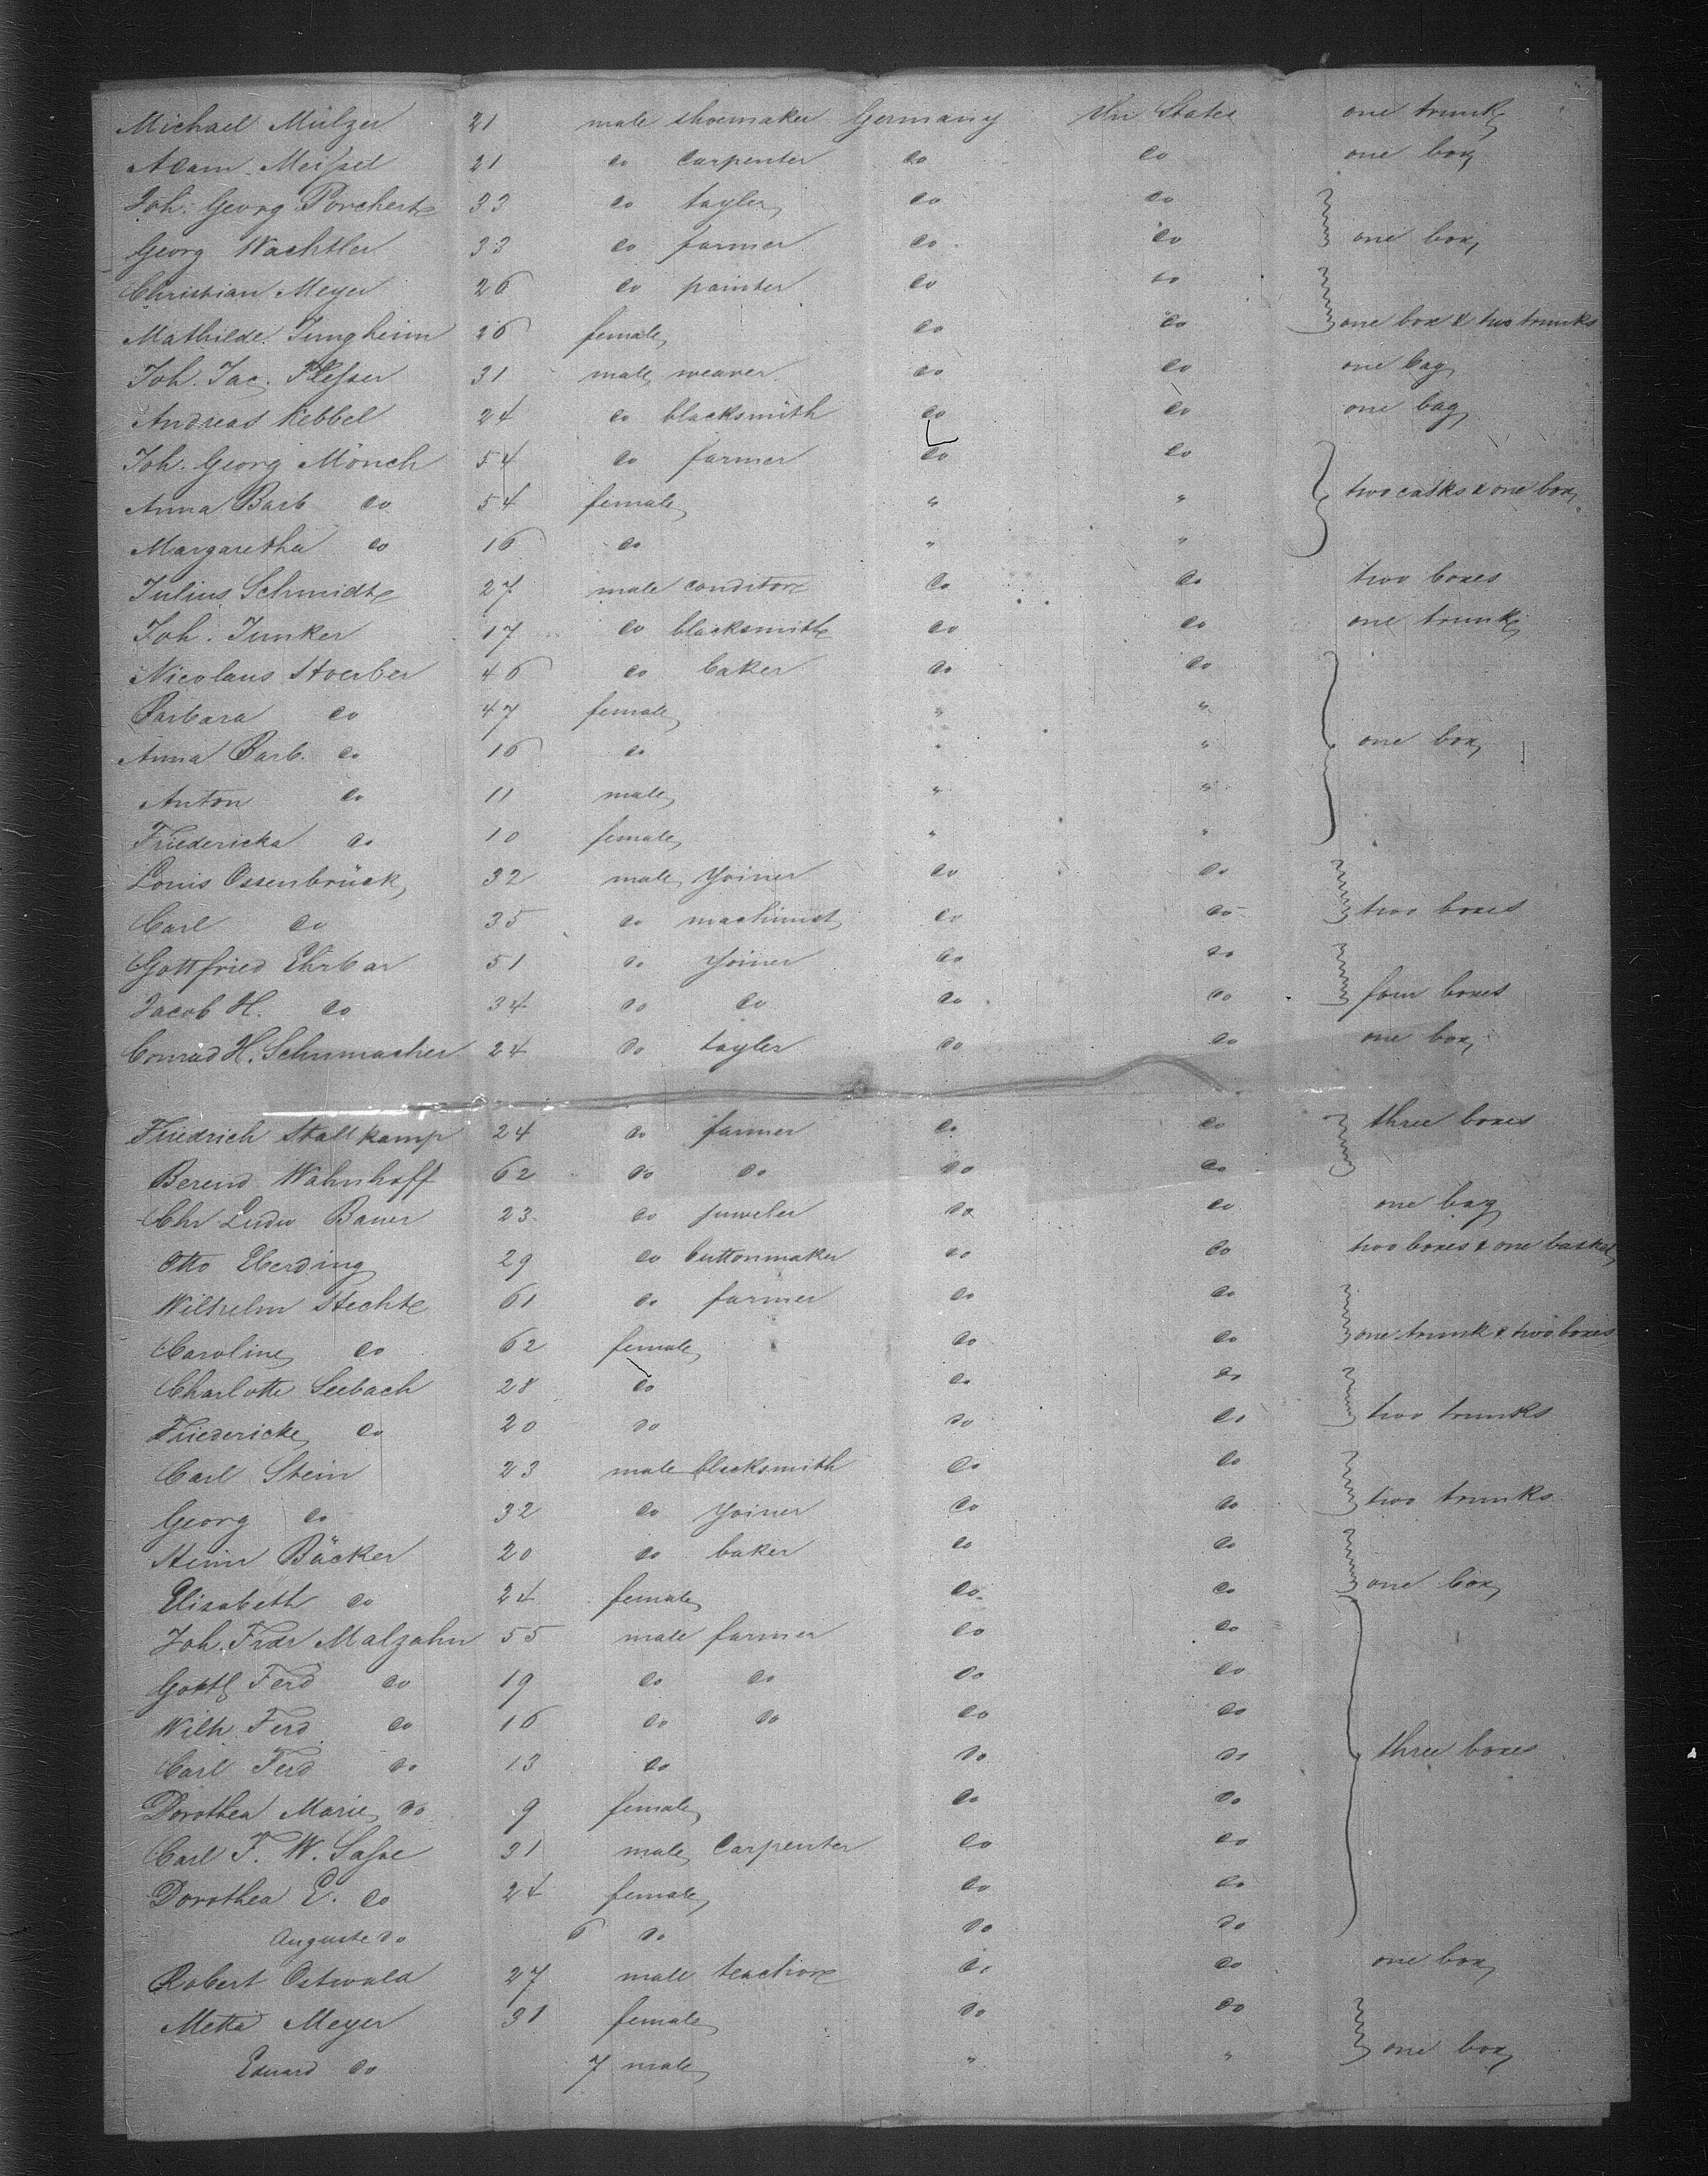 Michael Mülzer 21 male shoemaker Germany Un States one trunk
Adam Meissel 21 do carpenter do do one box
Joh. Georg Porchert 33 do tayler do do
Georg Wachtler 33 do farmer do do one box
Christian Meyer 26 do painter do do
Mathilde Jungheim 26 female do do one box & two trunks
Joh. Jac. Flesser 31 male weaver do do one bag
Andreas Kebbel 24 do blacksmith do do one bag
Joh. Georg Mönch 54 do farmer do do
Anna Barb do 54 female " " two casks & one box
Margaretha do 16 do " "
Julius Schmidt 27 male conditor do do two boxes
Joh. Junker 17 do blacksmith do do one trunk
Nicolaus Stoerber 46 do baker do do
Barbara do 47 female " "
Anna Barb. do 16 do " " one box
Anton do 11 male " "
Friedericka do 10 female " "
Louis Ossenbrück 32 male Joiner do do
Carl do 35 do machinist do do two boxes
Gottfried Ehrbar 51 do Joiner do do
Jacob H. do 34 do do do do four boxes
Conrad H. Schumacher 24 do tayler do do one box
Friedrich Stallkamp 24 do farmer do do three boxes
Berend Wahnhoff 62 do do do do
Chr Ludw Bauer 23 do juweler do do one bag
Otto Eberding 29 do buttonmaker do do two boxes & one basket
Wilhelm Stecht 61 do farmer do do
Caroline do 62 female do do one trunk & two boxes
Charlotte Seebach 28 do do do
Friedericke do 20 do do do two trunks
Carl Stein 23 male blacksmith do do
Georg do 32 do Joiner do do two trunks
Heinr Bäcker 20 do baker do do
Elisabeth do 24 female do do one box
Joh. Fredr Malzahn 55 male farmer do do
Gottl Ferd do 19 do do do do
Wilh Ferd do 16 do do do do
Carl Ferd do 13 do do do three boxes
Dorothea Marie do 9 female do do
Carl F. W. Sasse 31 male Carpenter do do
Dorothea E. do 24 female do do
Auguste do 6 do do do
Robert Ostwald 27 male teachor do do one box
Metta Meyer 31 female do do
Eduard do 7 male " " one box